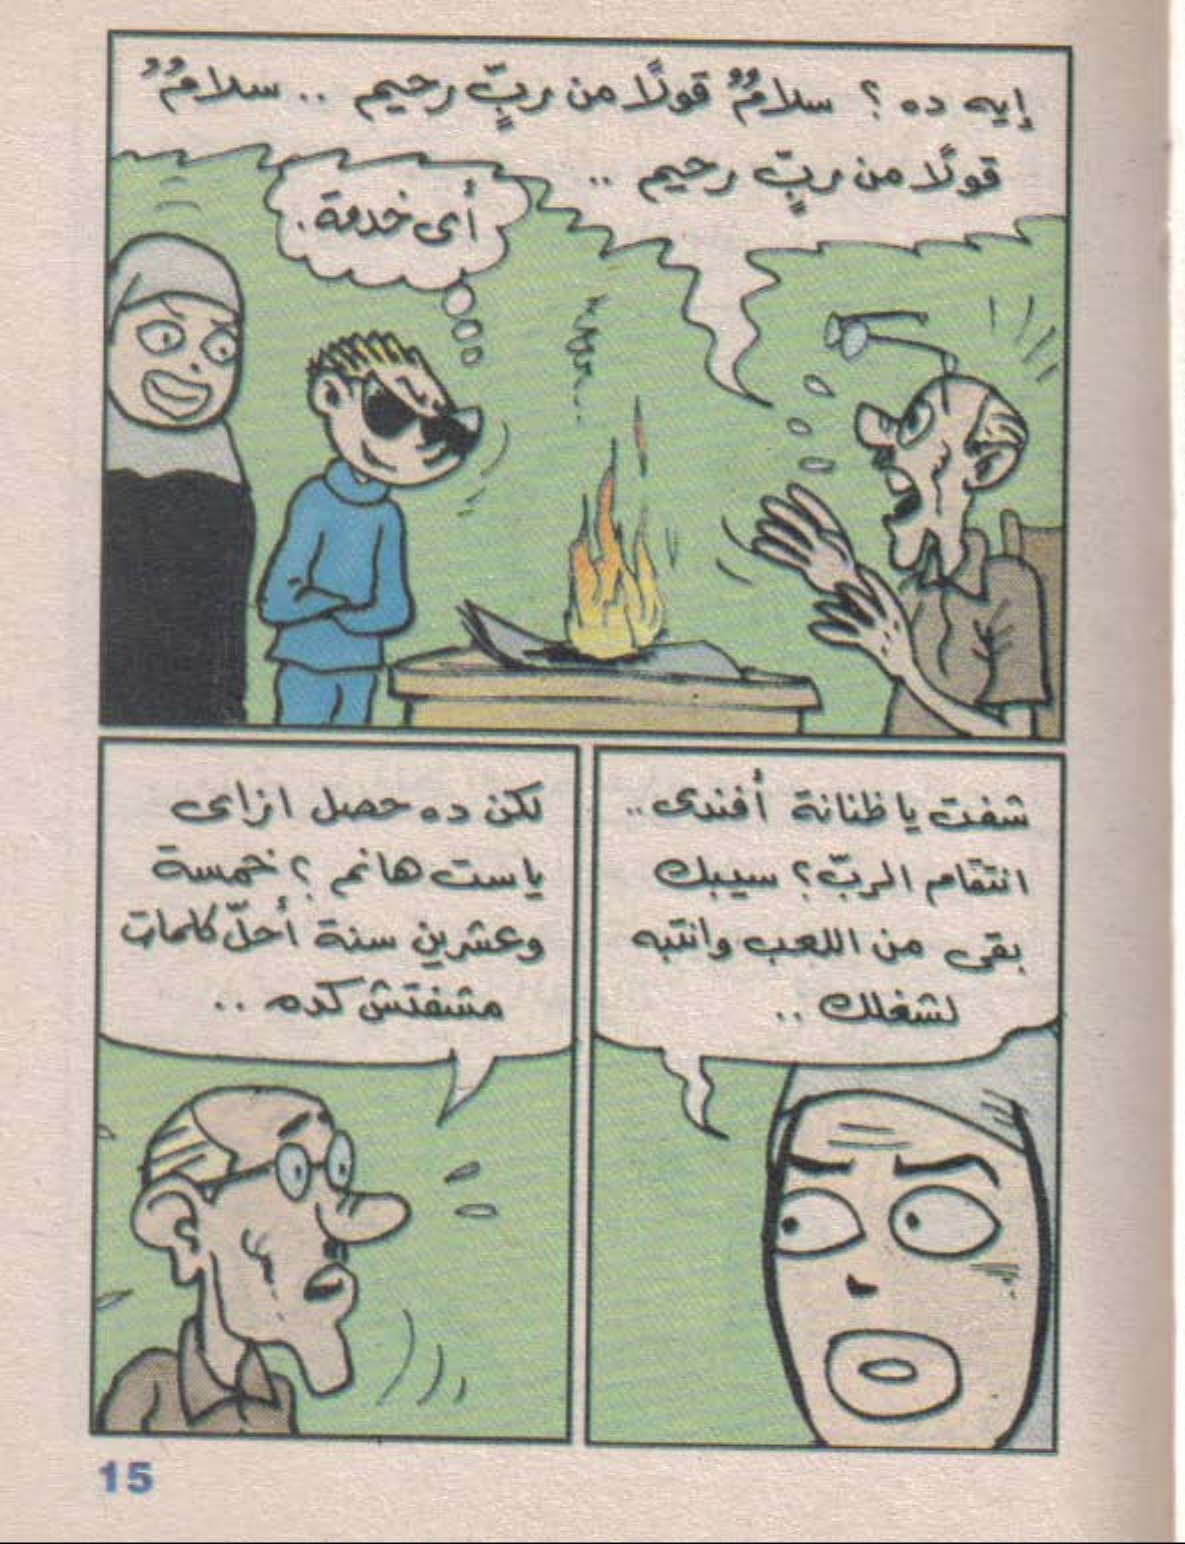 إيه ده ؟ سلامٌ قولًا من ربٍّ رحيم .. سلامٌ
قولًا من ربٍّ رحيم ..
أى خدمة.
شفت يا ظنانة أفندى ..
انتقام الربّ ؟ سيبك
بقى من اللعب وانتبه
لشغلك ..
لكن ده حصل ازاى
ياست هانم ؟ خمسة
وعشرين سنة أحلّ كلمات
مشفتش كده ..
15